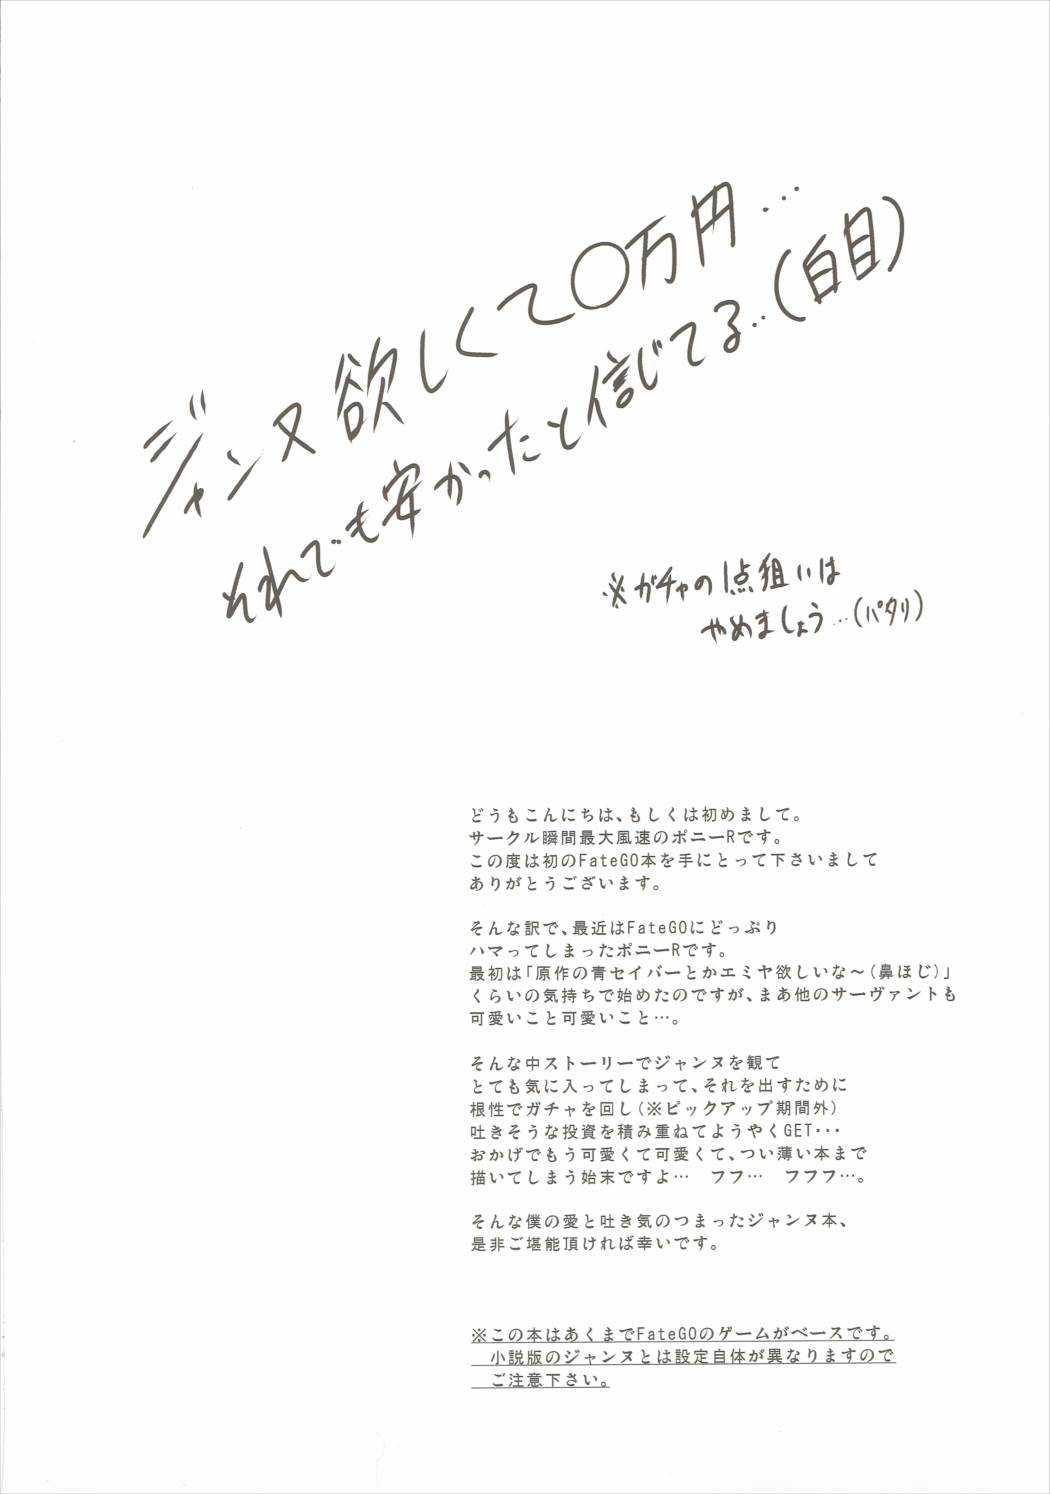 ジャンヌ欲しくて〇万円…
それでも安かったと信じてる…(白目)
※ガチャの1点狙いは
やめましょう…(パタリ)
どうもこんにちは、もしくは初めまして。
サークル瞬間最大風速のポニーRです。
この度は初のFateGO本を手にとって下さいまして
ありがとうございます。
そんな訳で、最近はFateGOにどっぷり
ハマってしまったポニーRです。
最初は「原作の青セイバーとかエミヤ欲しいな～(鼻ほじ)」
くらいの気持ちで始めたのですが、まあ他のサーヴァントも
可愛いこと可愛いこと…。
そんな中ストーリーでジャンヌを観て
とても気に入ってしまって、それを出すために
根性でガチャを回し(※ピックアップ期間外)
吐きそうな投資を積み重ねてようやくGET…
おかげでもう可愛くて可愛くて、つい薄い本まで
描いてしまう始末ですよ…　フフ…　フフフ…。
そんな僕の愛と吐き気のつまったジャンヌ本、
是非ご堪能頂ければ幸いです。
※この本はあくまでFateGOのゲームがベースです。
小説版のジャンヌとは設定自体が異なりますので
ご注意下さい。